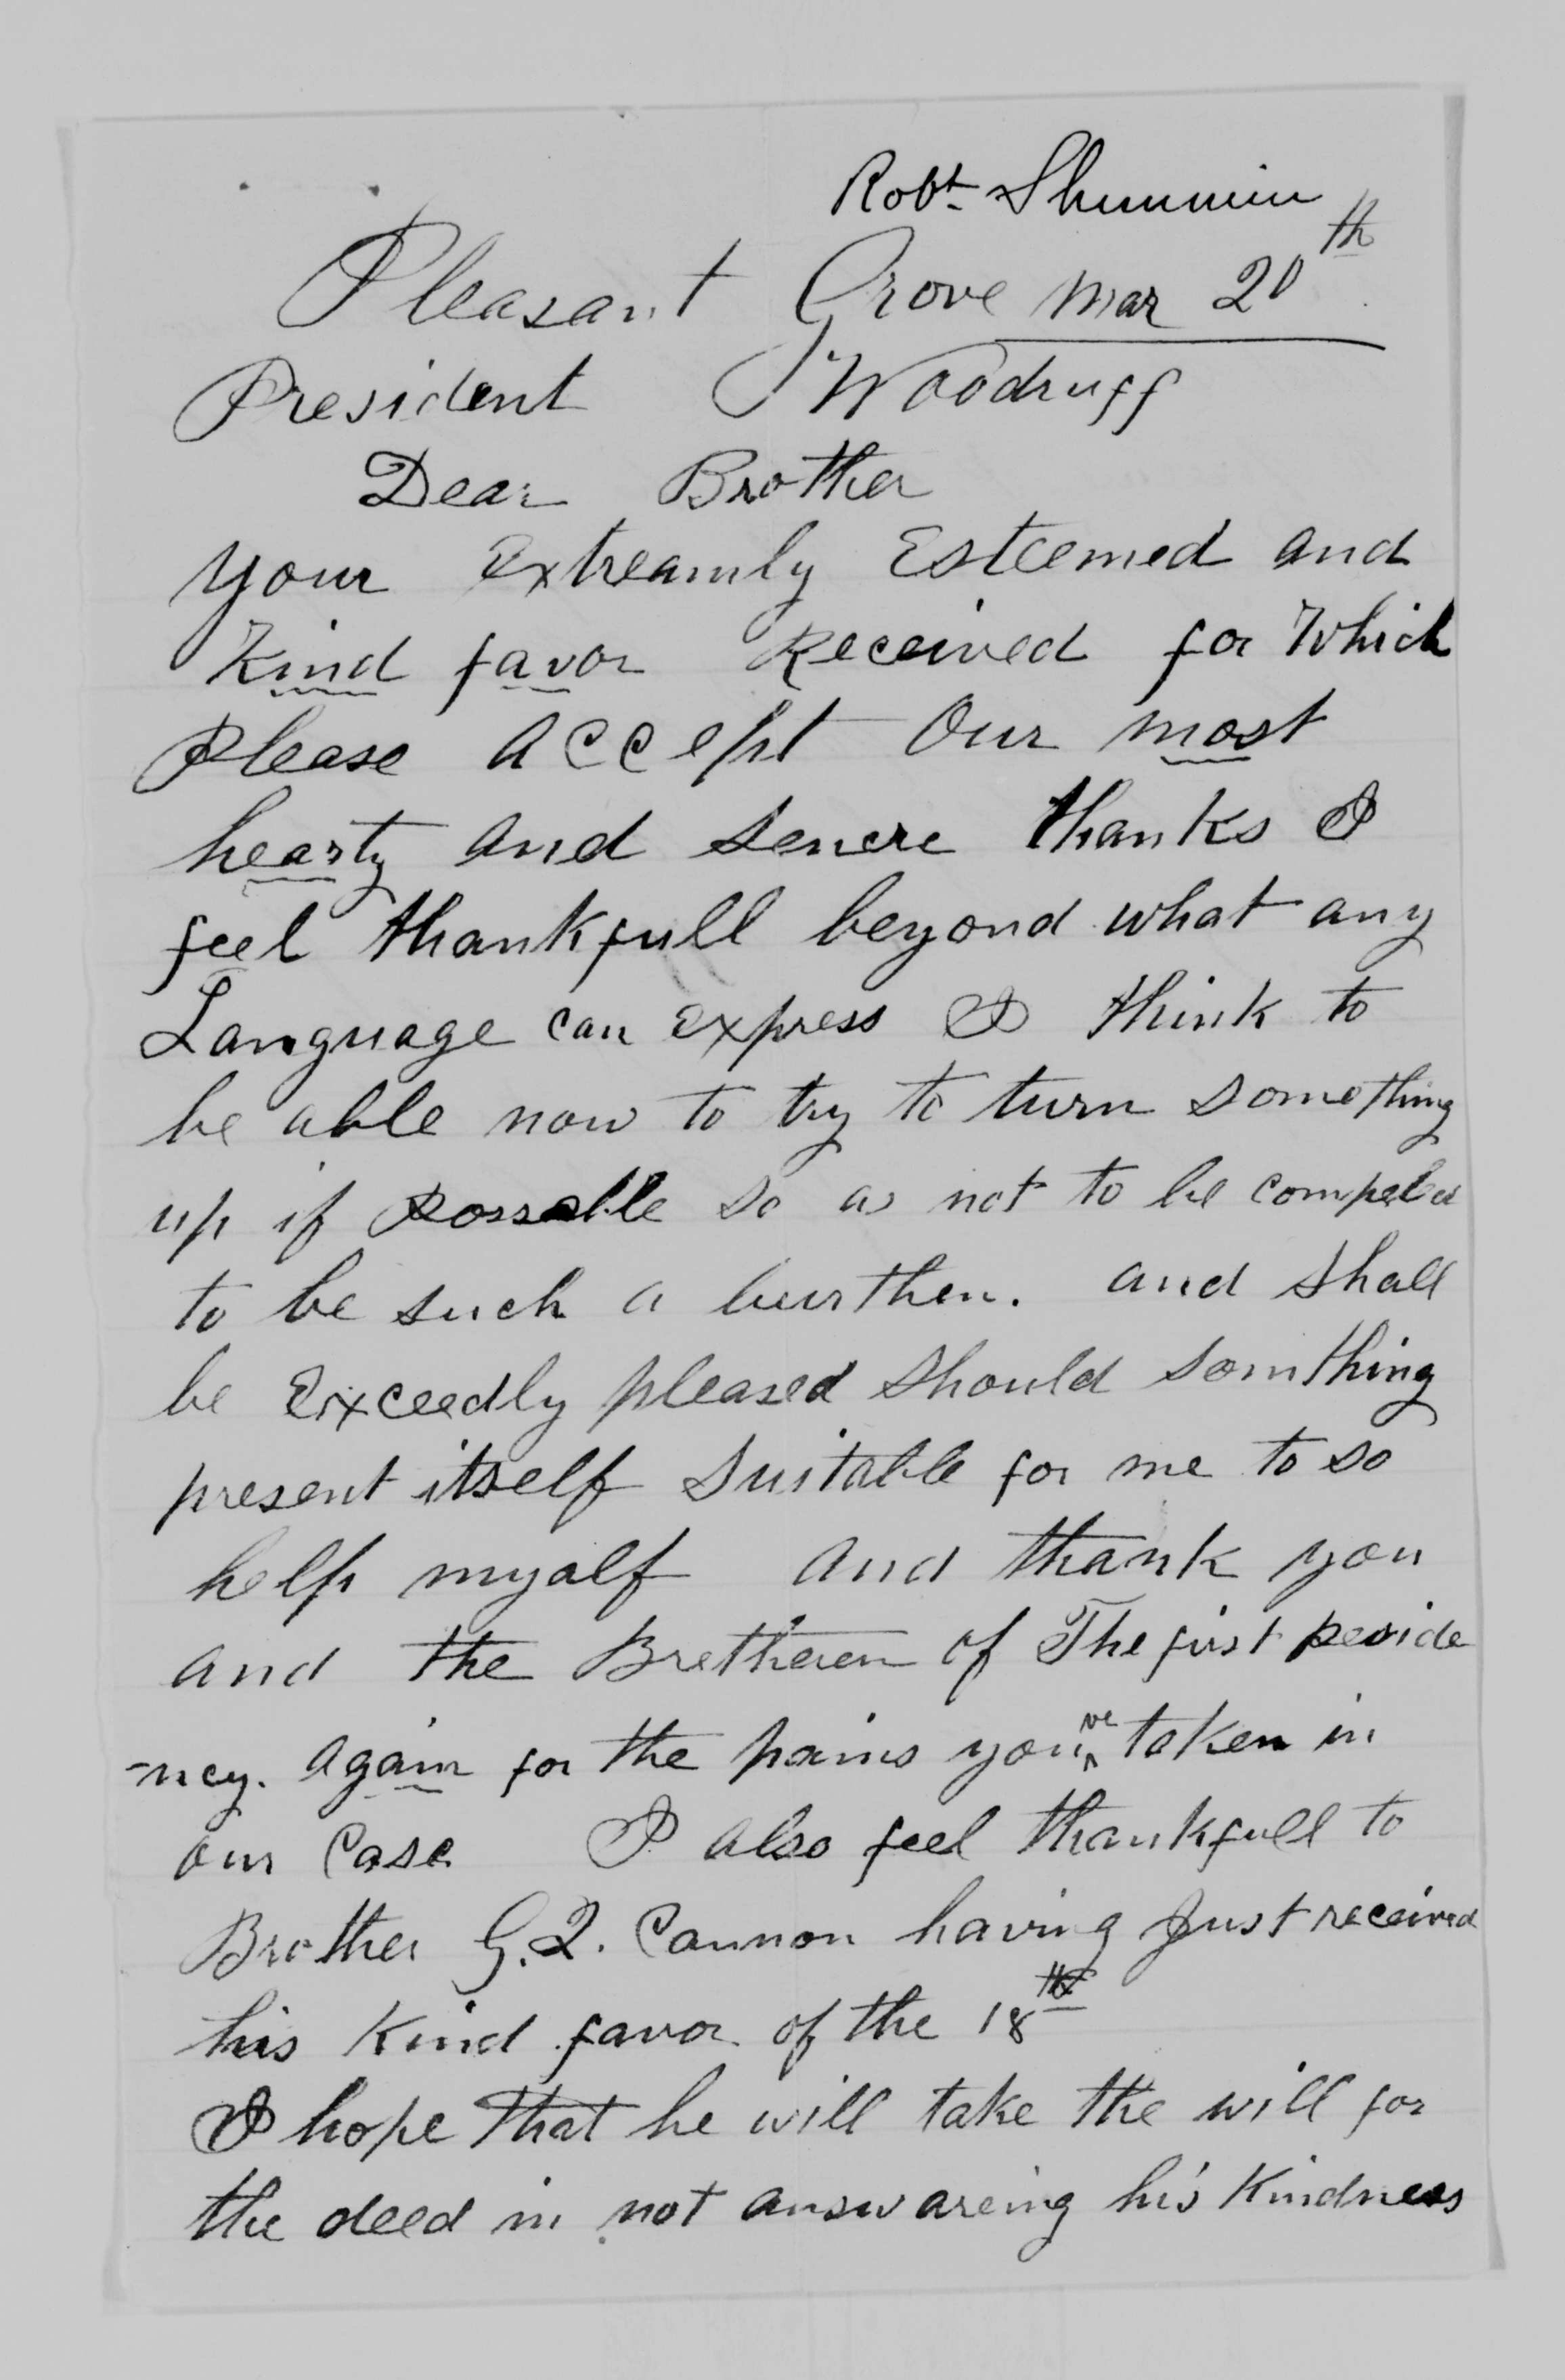 Robt. Shimmin
Pleasant Grove Mar 20th
President Woodruff
Dear Brother
your Extreamly Esteemed and
Kind favor Received for Which
Please Accept Our most
hearty and sencre thanks I
feel thankfull beyond what any
Language can express I think to
be able now to try to turn something
up if Possable so as not to be compeled
to be such a burthen. and shall
be Exceedly pleased should somthing
present itself suitable for me to so
help myself and thank you
and the Bretheren of The first preside
-ncy. Again for the pains you ve taken in
our Case I also feel thankfull to
Brother G. Q. Cannon having Just received
his Kind favor of the 18th
I hope that he will take the will for
the deed in not answareing his Kindness